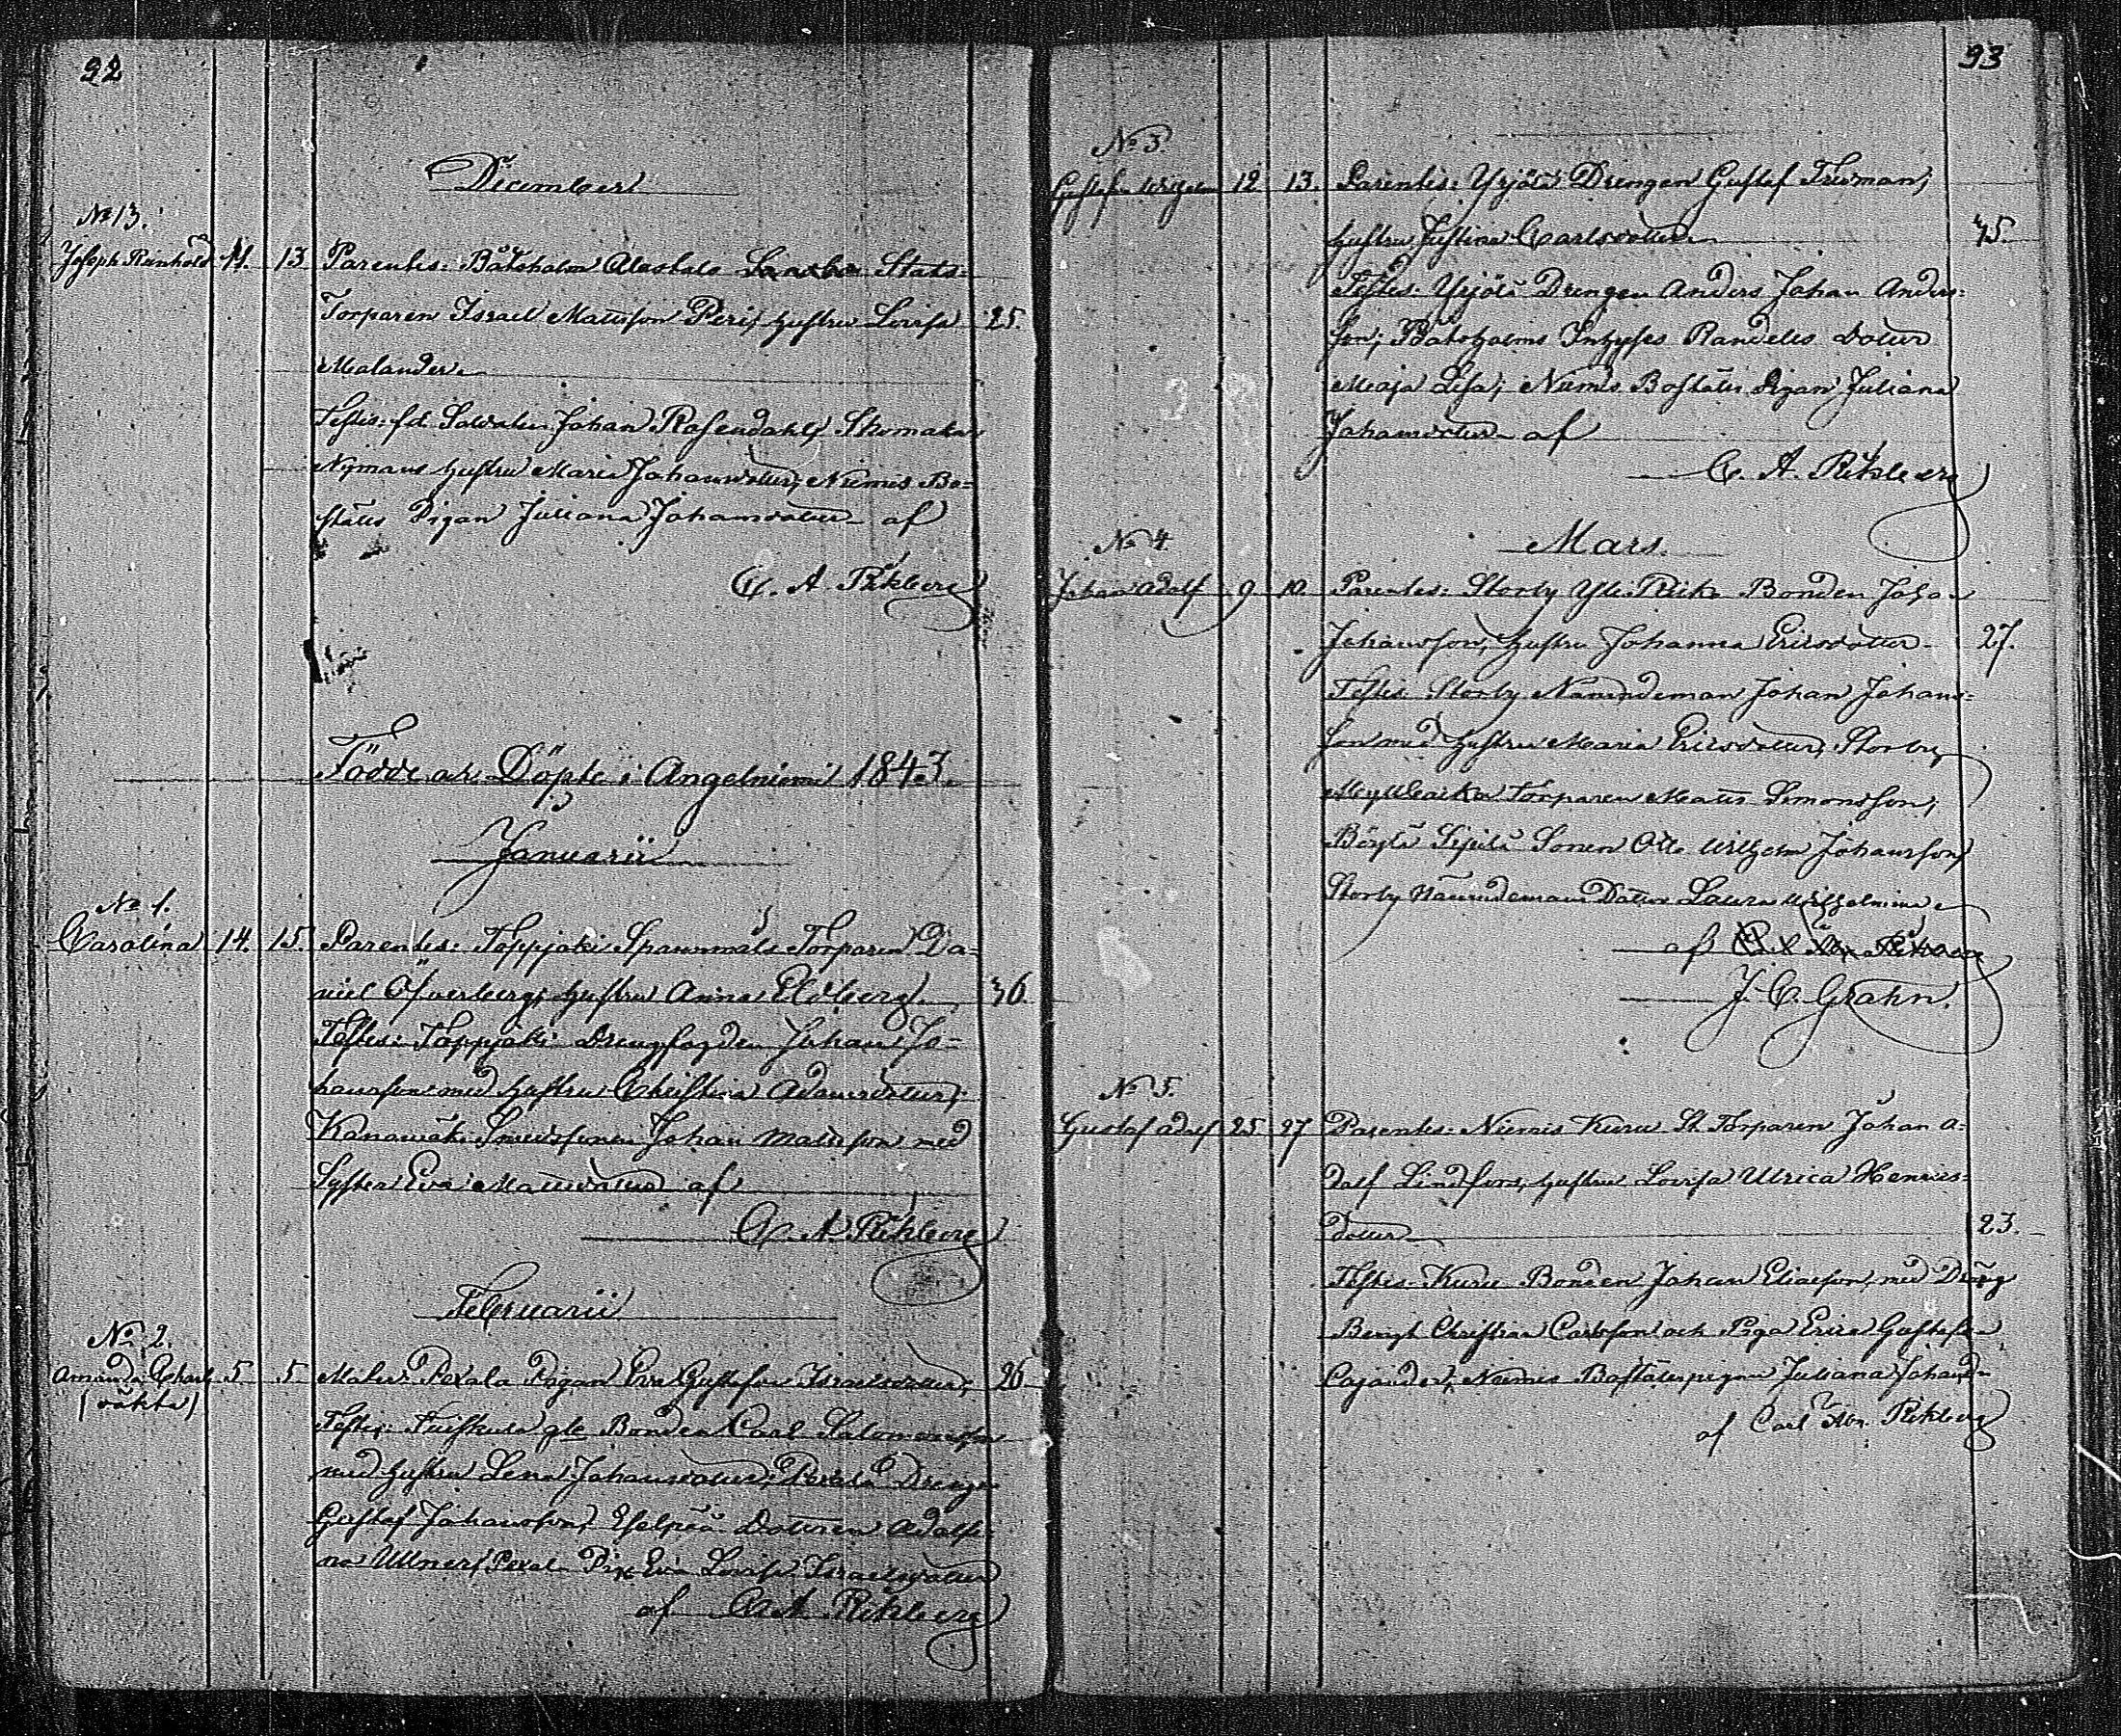 92
December
No 13.
Joseph Reinhold 11. 13 Parentes: Båtsholm Alastalo Stats
Torparen Israel Mattsson Hustru Lovisa 25.
Malander.
Testes: fd. Soldaten Johan Rosendahl, Skomakar
Nymans hustru Maria Johansdotter, Niemis Bo-
ställs Pigan Juliana Johansdotter af
C. A. Rikberg
Födde och Döpte i Angelniemi 1843.
Januarii
No 1.
Carolina 14. 15. Parentes: Toppjoki Spannmåls Torparen Da-
niel Öfverberg, hustru Anna Eloberg. 36.
Testes: Toppjoki Drengfogden Johan Jo-
hansson med hustru Christina Adamsdotter;
Smedssonen Johan Mattsson med
Syster Eva Mattsdotter af
C. A. Rikberg
Februarii
No 2.
Amanda Charl. 5. 5 Mater: Pexala Pigan Eva Gustafva Israelsdotter, 26
(oäkta)
Testes: Bonden Carl Salomonsson
med hustru Lena Johansdotter, Pexala Dreng
Gustaf Johansson, Dottren Adolfi-
na Ullner, Pexala Pig. Eva Lovisa Israelsdotter
af C. A. Rikberg
93
No 3.
Gustaf Wilhelm 12 13. Parentes: Yrjölä Drengen Gustaf Friman,
hustru Justina Carlsdotter 45.
Testes: Yrjölä Drengen Anders Johan Anders-
son; Båtsholms Inhyses Randelis dotter
Maja Lisa; Niemis Boställs Pigan Juliana
Johansdotter af
C. A. Rikberg
Mars.
No 4.
Johan Adolf 9 10. Parentes: Storby Yli Bonden Johan
Johansson, hustru Johanna Ericsdotter 27.
Testes: Storby Nämndeman Johan Johans-
son med hustru Maria Ericsdotter, Storby
Torparen Matts Simonsson,
Sipilä Sonen Otto Wilhelm Johansson,
Storby Nämndeman Dotter Laura Wilhelmina
af
J. C. Grahn.
No 5.
Gustaf Adolf 25 27 Parentes: Niemis Kuru St. Torparen Johan A-
dolf Lindfors, hustru Lovisa Ulrica Henrics-
dotter 23.
Testes: Kuru Bonden Johan Eliasson, med Dräng
Bengt Christian Carlsson och Piga Erica Gustafva
Cajander, Niemis Boställspigan Juliana Johansd.
af Carl Abr. Rikberg